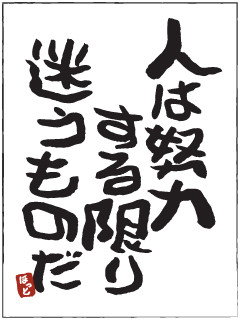 人は努力
する限り
迷うものだ
ほっと